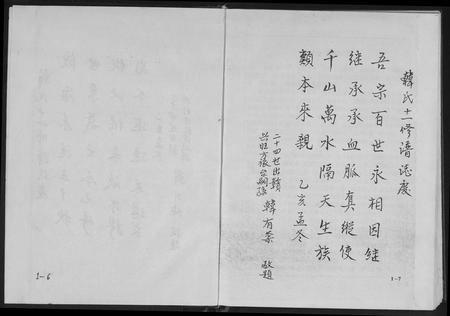 韓氏十一修譜誌慶
吾宗百世永相因繼
繼承承血脈真縱使
千山萬水隔天生族
類本來親 乙亥孟冬
二十四世出贛
嗣孫 韓有 敬題
1-6
1-7